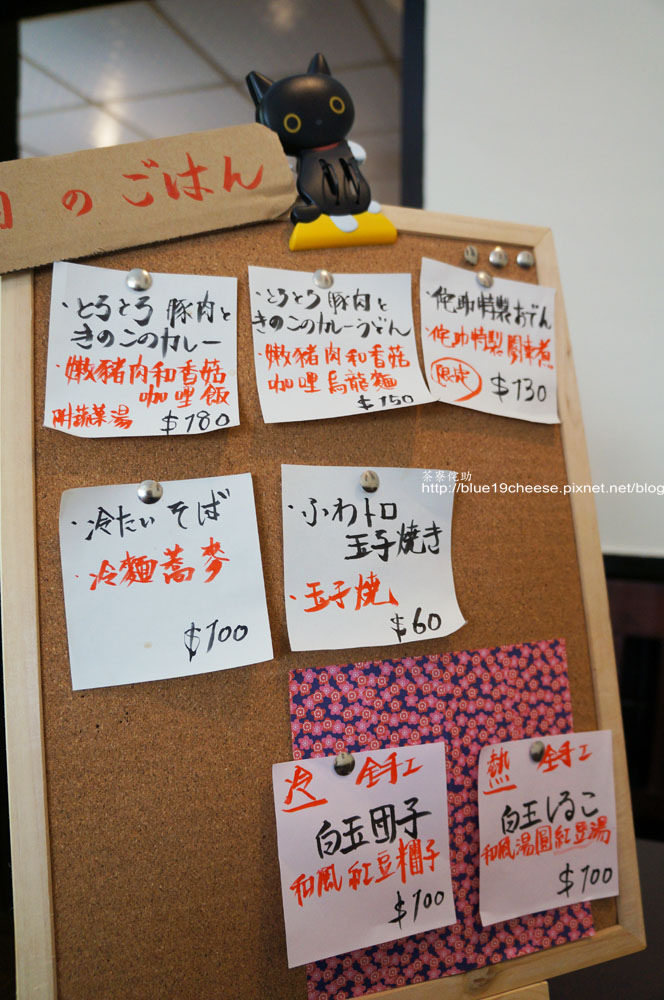 のごはん
・とろとろ 豚肉と
きのこのカレー
・嫩豬肉和香菇
咖哩飯
附蔬菜湯 $180
・とろとろ 豚肉と
きのこのカレーうどん
・嫩豬肉和香菇
咖哩烏龍麵
$150
・侘助特製おでん
・侘助特製關東煮
限定 $130
茶寮侘助
http://blue19cheese.pixnet.net/blog
・冷たいそば
・冷麵蕎麥
$100
・ふわトロ
玉子焼き
・玉子燒
$60
冷 全手工
白玉団子
和風紅豆糰子
$100
熱 全手工
白玉しるこ
和風湯圓紅豆湯
$100